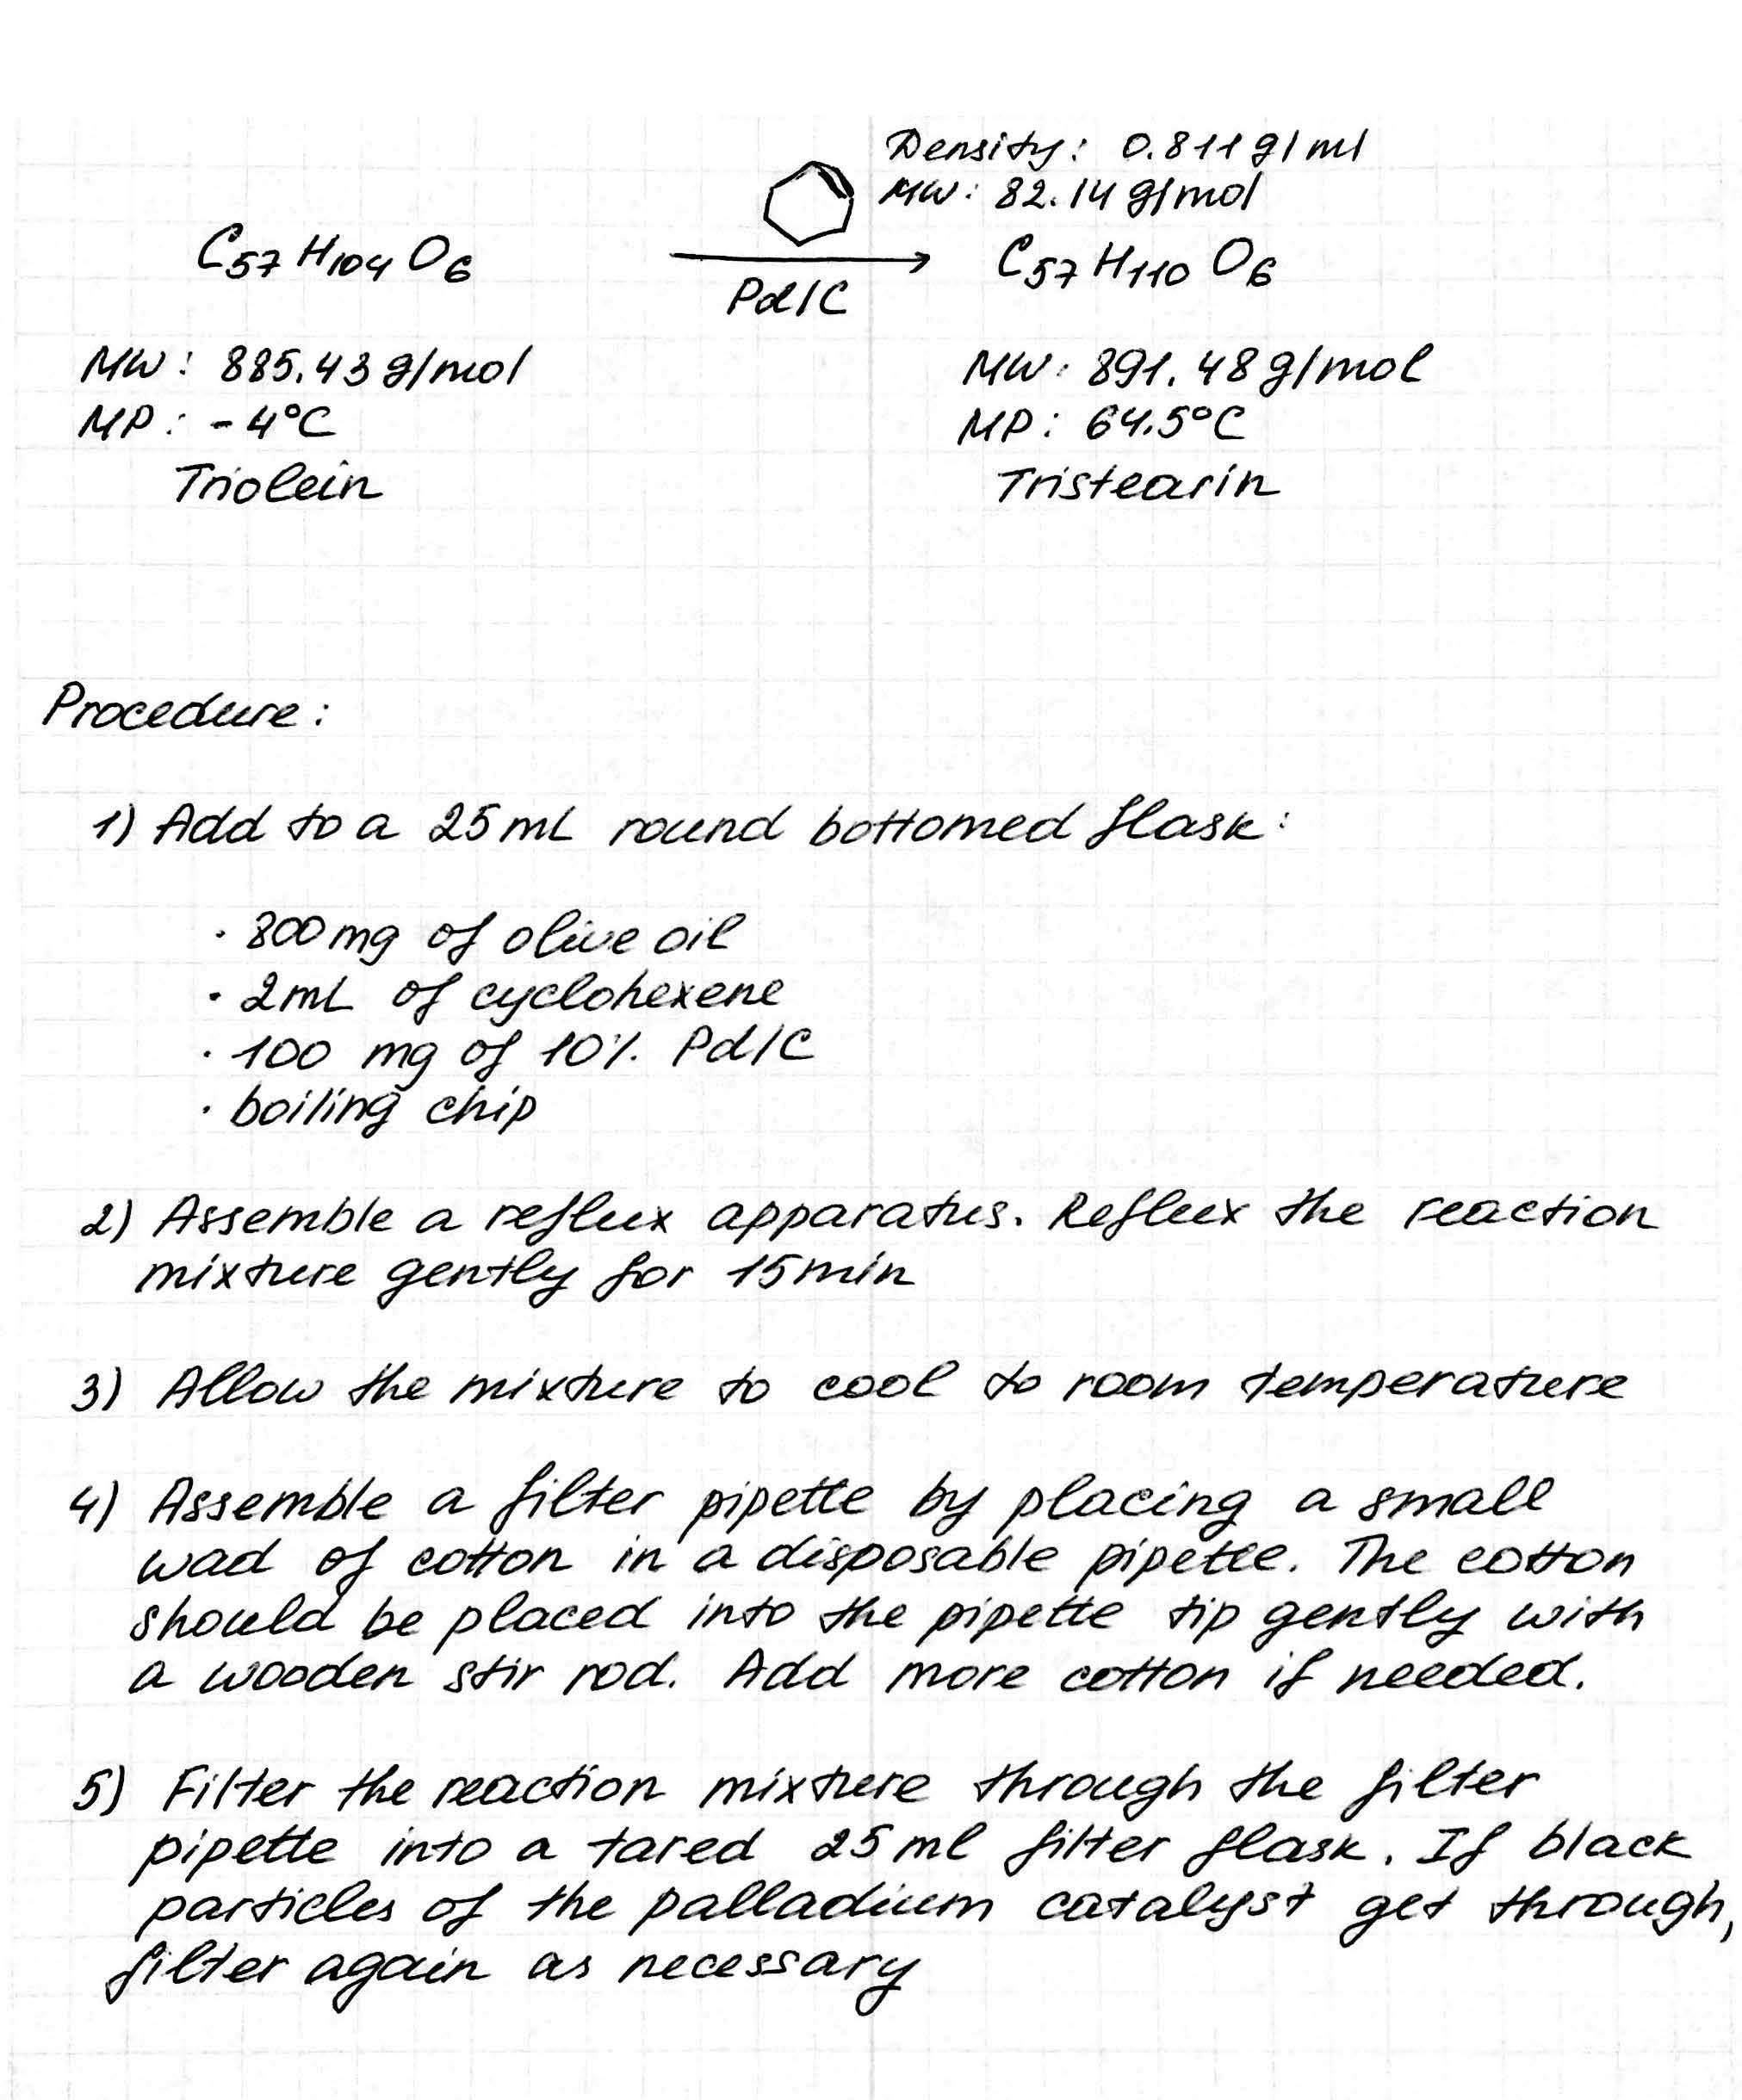 Density: 0.811 g/ml
MW: 82.14 g/mol
C57H104O6
Pd/C
C57H110O6
MW: 885.43 g/mol
MP: -4°C
Triolein
MW: 891.48 g/mol
MP: 64.5°C
Tristearin
Procedure:
1) Add to a 25mL round bottomed flask:
· 800mg of olive oil
· 2mL of cyclohexene
· 100 mg of 10% Pd/C
· boiling chip
2) Assemble a reflux apparatus. Reflux the reaction
mixture gently for 15min
3) Allow the mixture to cool to room temperature
4) Assemble a filter pipette by placing a small
wad of cotton in a disposable pipette. The cotton
should be placed into the pipette tip gently with
a wooden stir rod. Add more cotton if needed.
5) Filter the reaction mixture through the filter
pipette into a tared 25ml filter flask. If black
particles of the palladium catalyst get through,
filter again as necessary